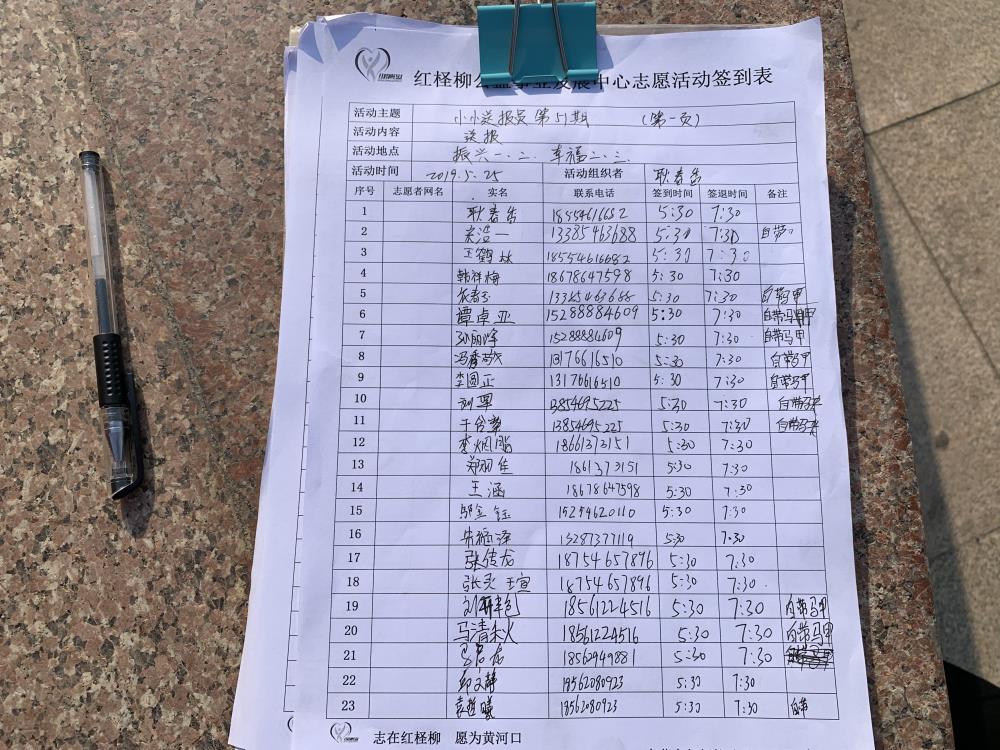 红柽柳公益事业发展中心志愿活动签到表
活动主题 小小送报员第51期 (第一页)
活动内容 送报
活动地点 振兴一.二. 幸福二.三.
活动时间 2019.5.25 活动组织者 耿春香
序号 志愿者网名 实名 联系电话 签到时间 签退时间 备注
1 耿春香 18554616682 5:30 7:30
2 13385463688 5:30 7:30 自带
3 王鹤林 18554616682 5:30 7:30
4 韩祥梅 18678647598 5:30 7:30
5 5:30 7:30 自带马甲
6 谭卓亚 15288884609 5:30 7:30 自带马甲
7 孙丽萍 1528884609 5:30 7:30 自带马甲
8 13176616510 5:30 7:30 自带马甲
9 李圆正 13176616510 5:30 7:30 自带马甲
10 13854695225 5:30 7:30 自带马夹
11 13854695225 5:30 7:30 自带马夹
12 18661373151 5:30 7:30
13 郑羽佳 1861373151 5:30 7:30
14 王涵 18678647598 5:30 7:30
15 金钰 15254620110 5:30 7:30
16 13287377119 5:30 7:30
17 张传龙 18754657896 5:30 7:30
18 张 王宣 18754657896 5:30 7:30
19 18561224516 5:30 7:30 自带马甲
20 马清秋 18561224516 5:30 7:30 自带马甲
21 18562949881 5:30 7:30
22 邱文静 18562080923 5:30 7:30
23 18562080923 5:30 7:30 自带
志在红柽柳 愿为黄河口